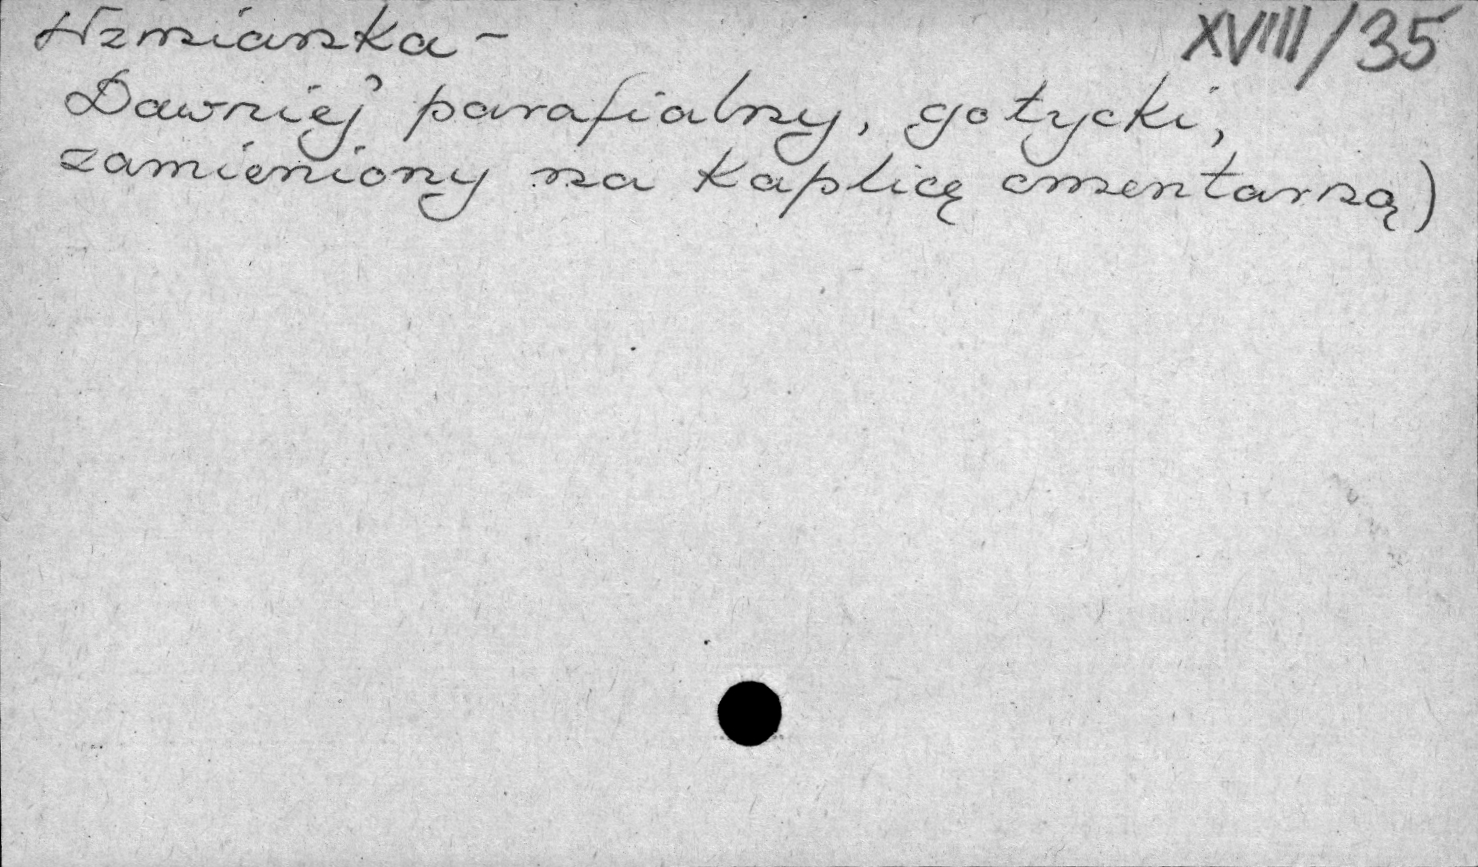 Wzmianka - XVIIII/35
Dawniej parafialny, gotycki,
zamieniony na kaplicę cmentarną)